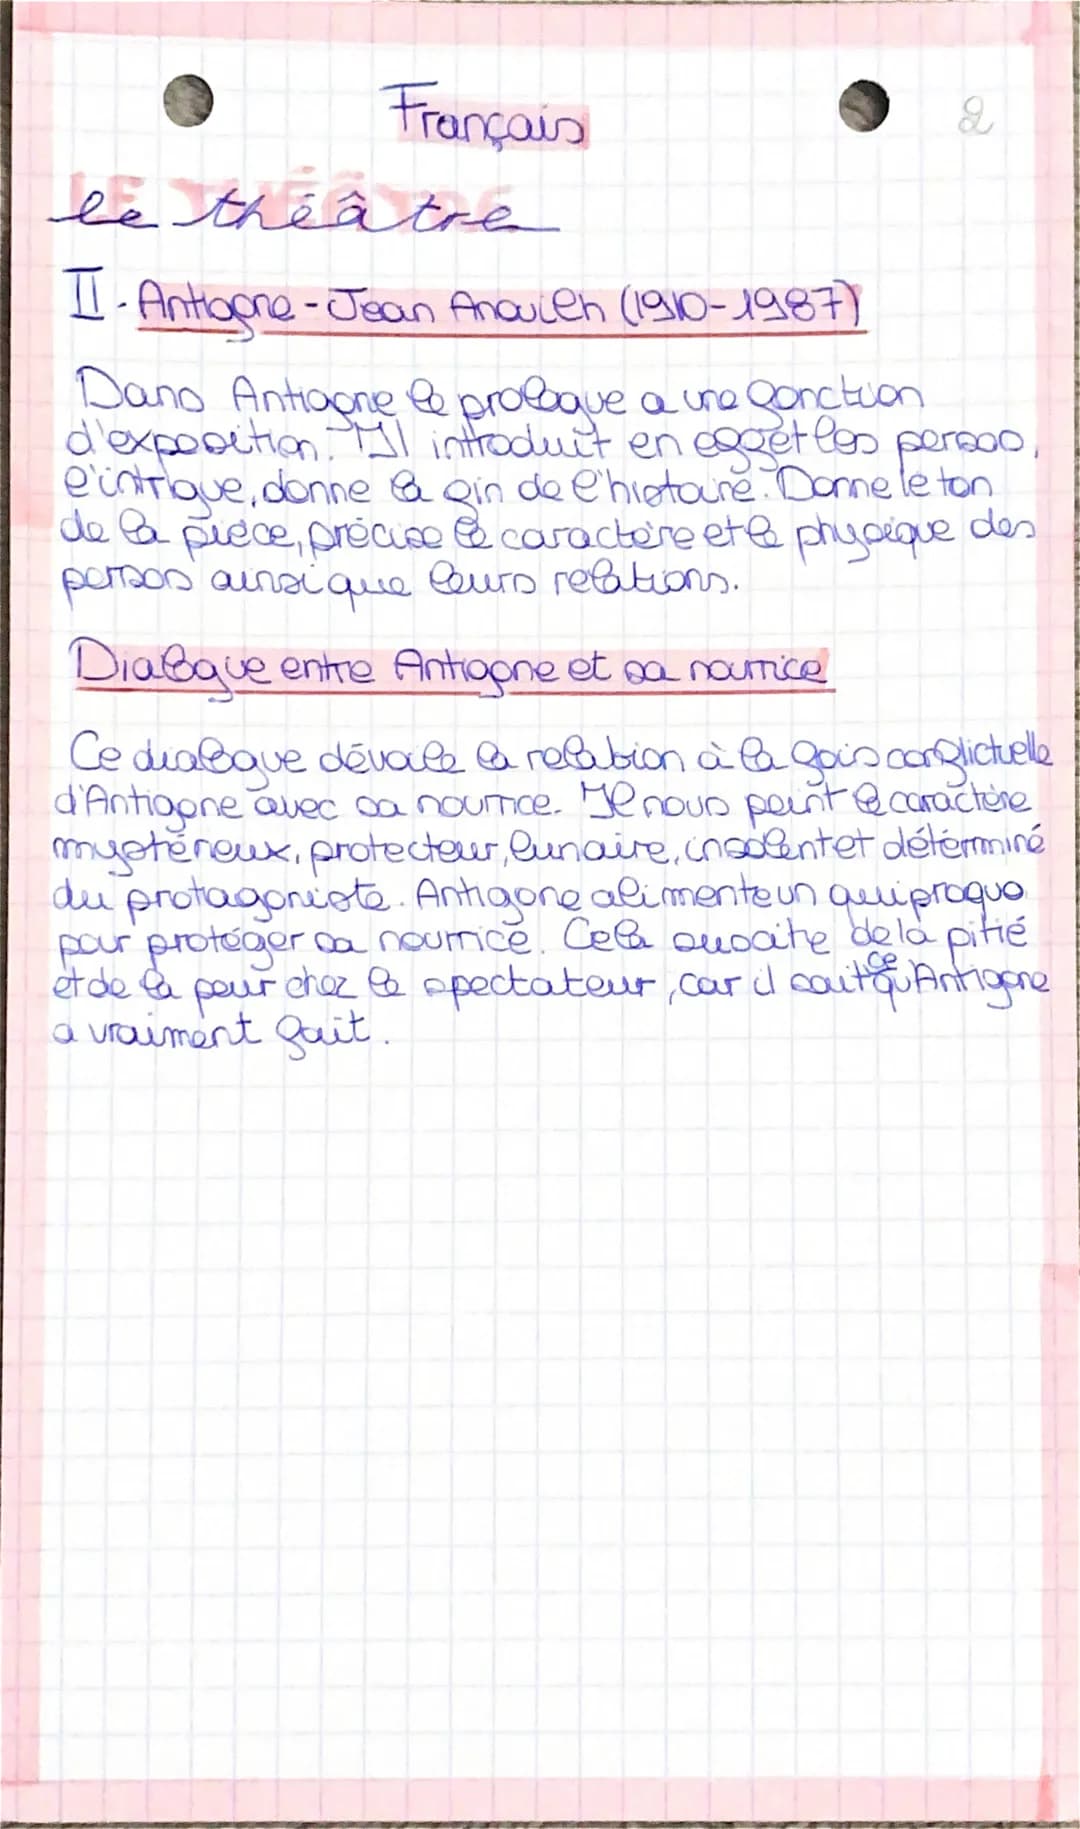 Français
2
LE THÉÂTRE
le théâtre
II. Antiogne - Jean Anouilh (1910-1987)
Dans Antiogne le prologue a une fonction
d'exposition. Il introduit en effet les persos,
l'intrigue, donne la fin de l'histoire. Donne le ton
de la pièce, précise le caractère et le physique des
persos ainsi que leurs relations.
Dialogue entre Antigone et sa nourrice
Ce dialogue dévoile la relation à la fois conflictuelle
d'Antigone avec sa nourrice. Il nous peint le caractère
mystérieux, protecteur, lunaire, insolent et détérminé
du protagoniste. Antigone alimente un quiproquo
pour protéger sa nourrice. Cela suscite de la pitié
et de la peur chez le spectateur, car il sait ce qu'Antigone
a vraiment fait.